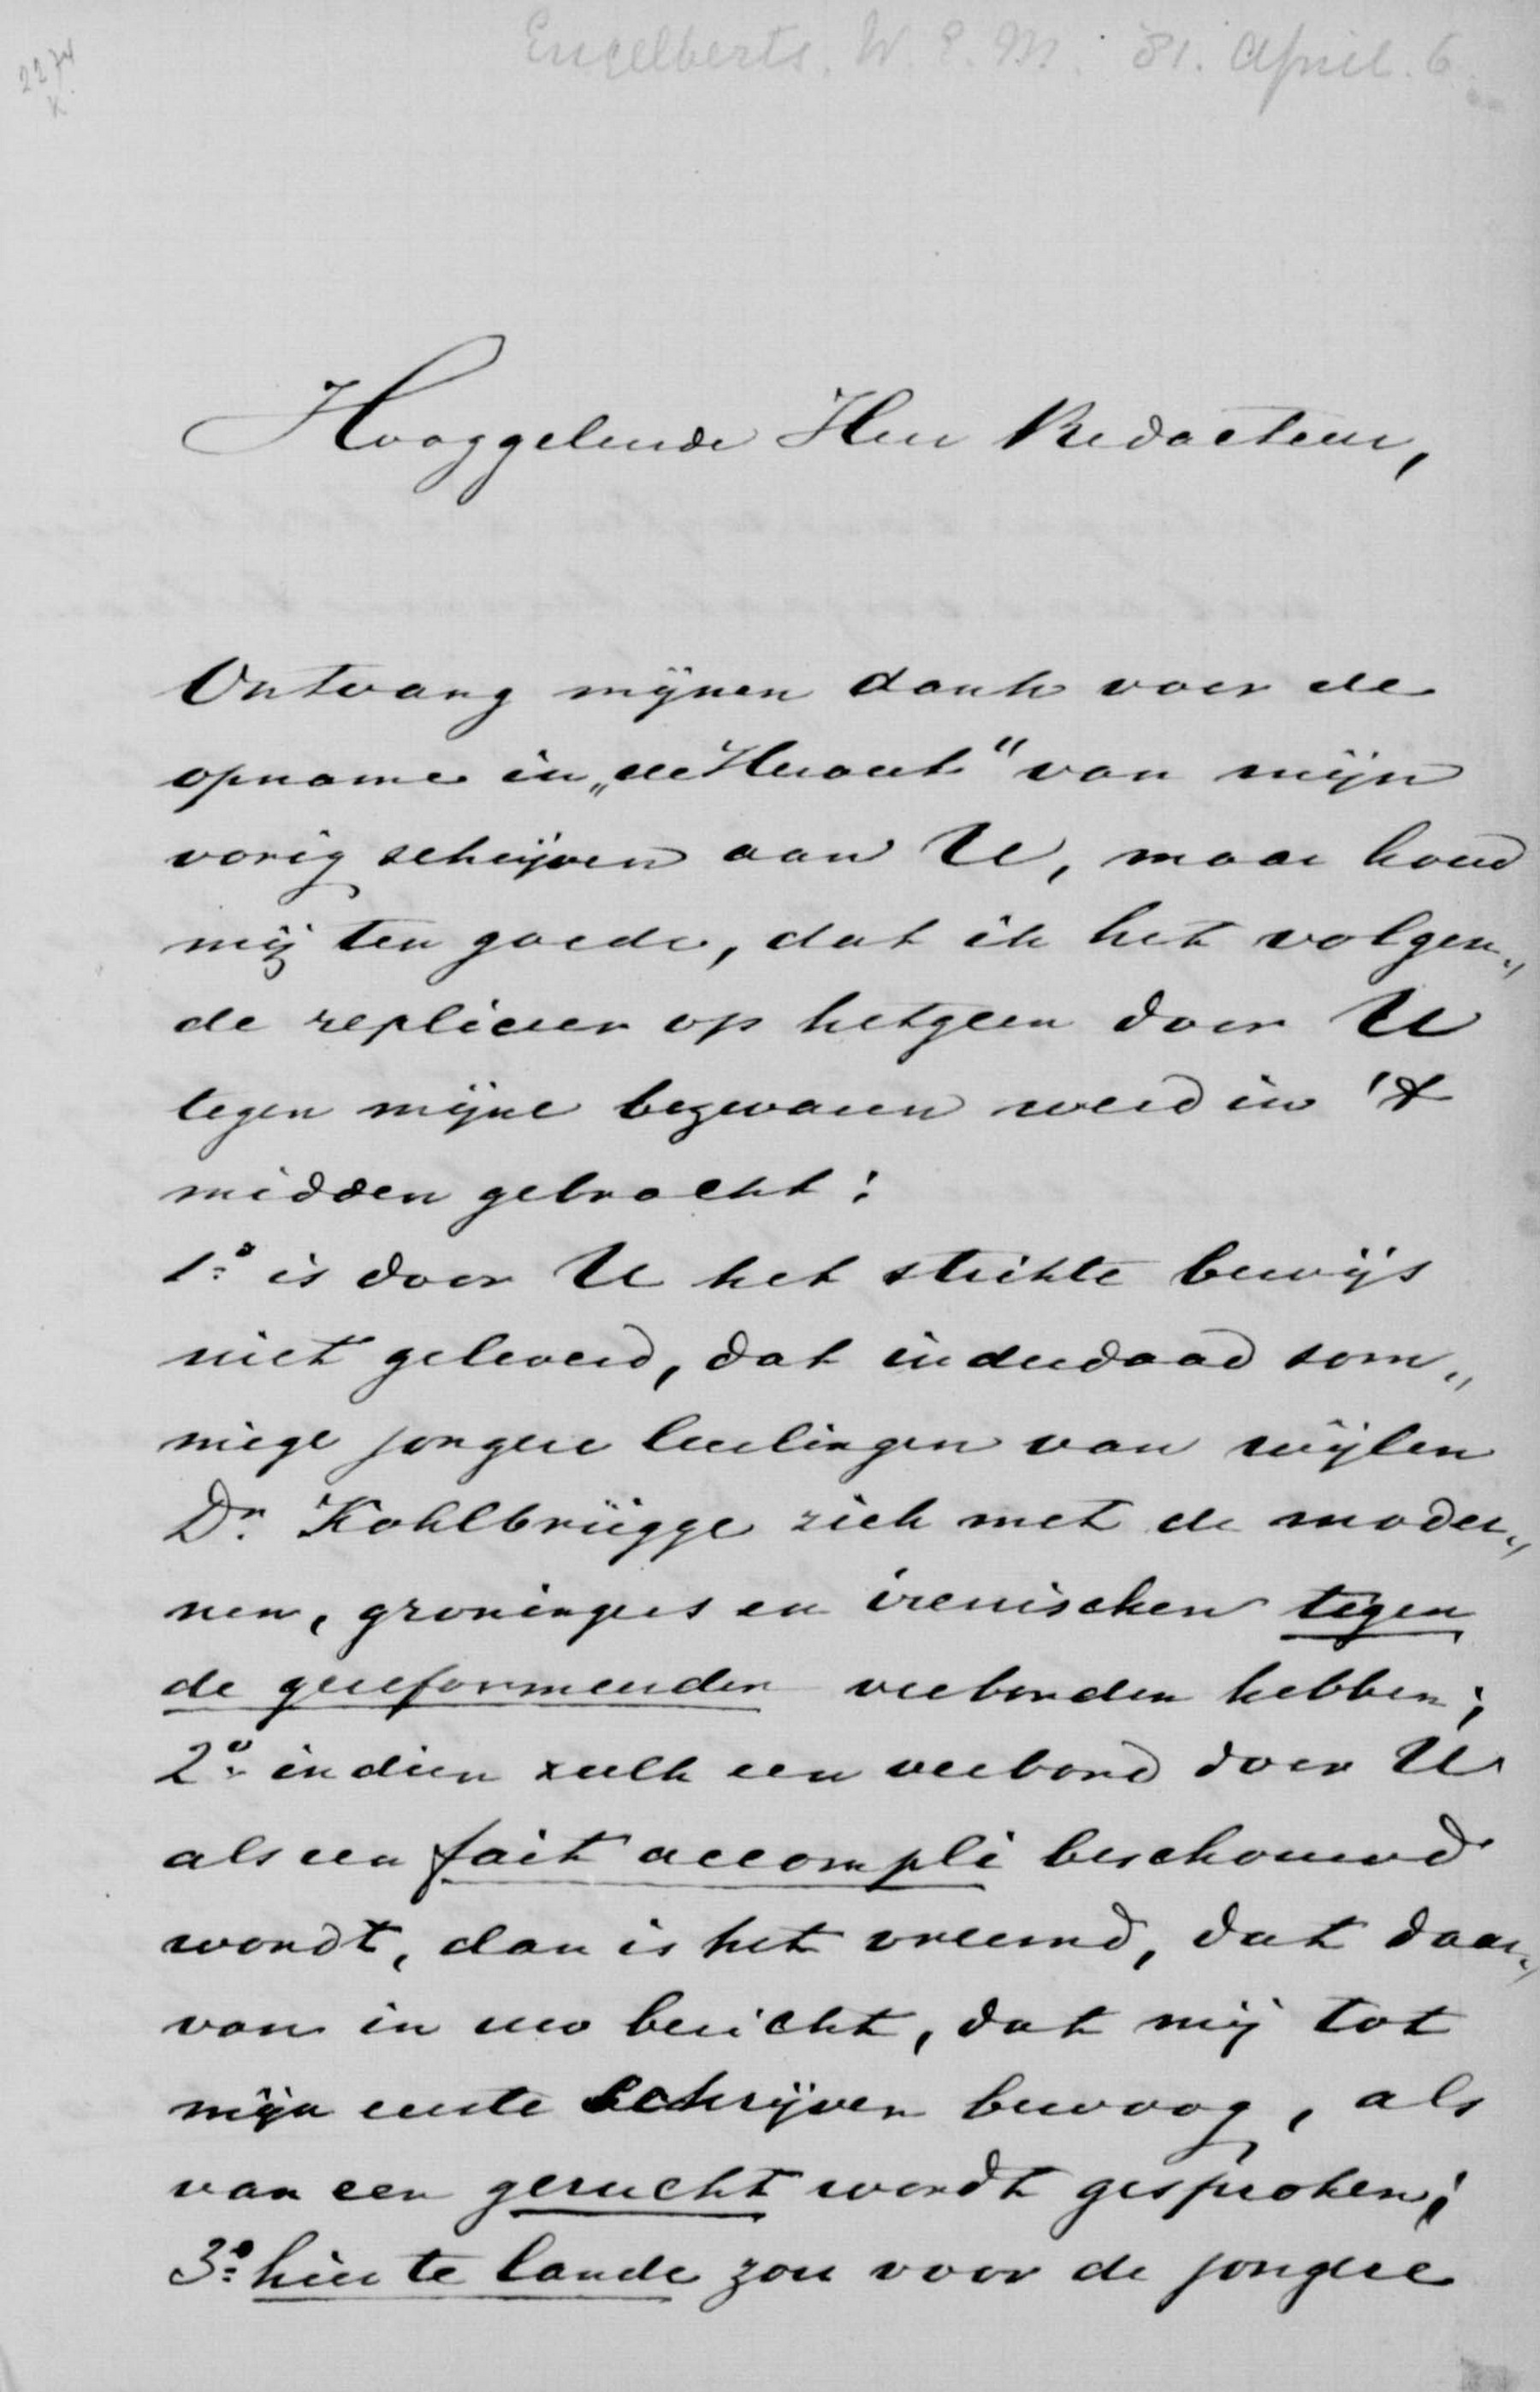 Engelberts. W. E. M. 81. April. 6
2274
K.
Hooggeleerde Heer Redacteur,
Ontvang mijnen dank voor de
opname in „de Heraut“ van mijn
vorig schrijven aan U, maar houd
mij ten goede, dat ik het volgen„
de repliceer op hetgeen door U
tegen mijne bezwaren werd in 't
midden gebracht:
1o. is door U het strikte bewijs
niet geleverd, dat inderdaad som„
mige jongere leerlingen van wijlen
Dr. Kohlbrügge zich met de moder„
nen, groningers en irenischen tegen
de gereformeerden verbonden hebben;
2o. indien zulk een verbond door U
als een fait accompli beschouwd
wordt, dan is het vreemd, dat daar„
van in uw bericht, dat mij tot
mijn eerste schrijven bewoog, als
van een gerucht wordt gesproken;
3o. hier te lande zou voor de jongere